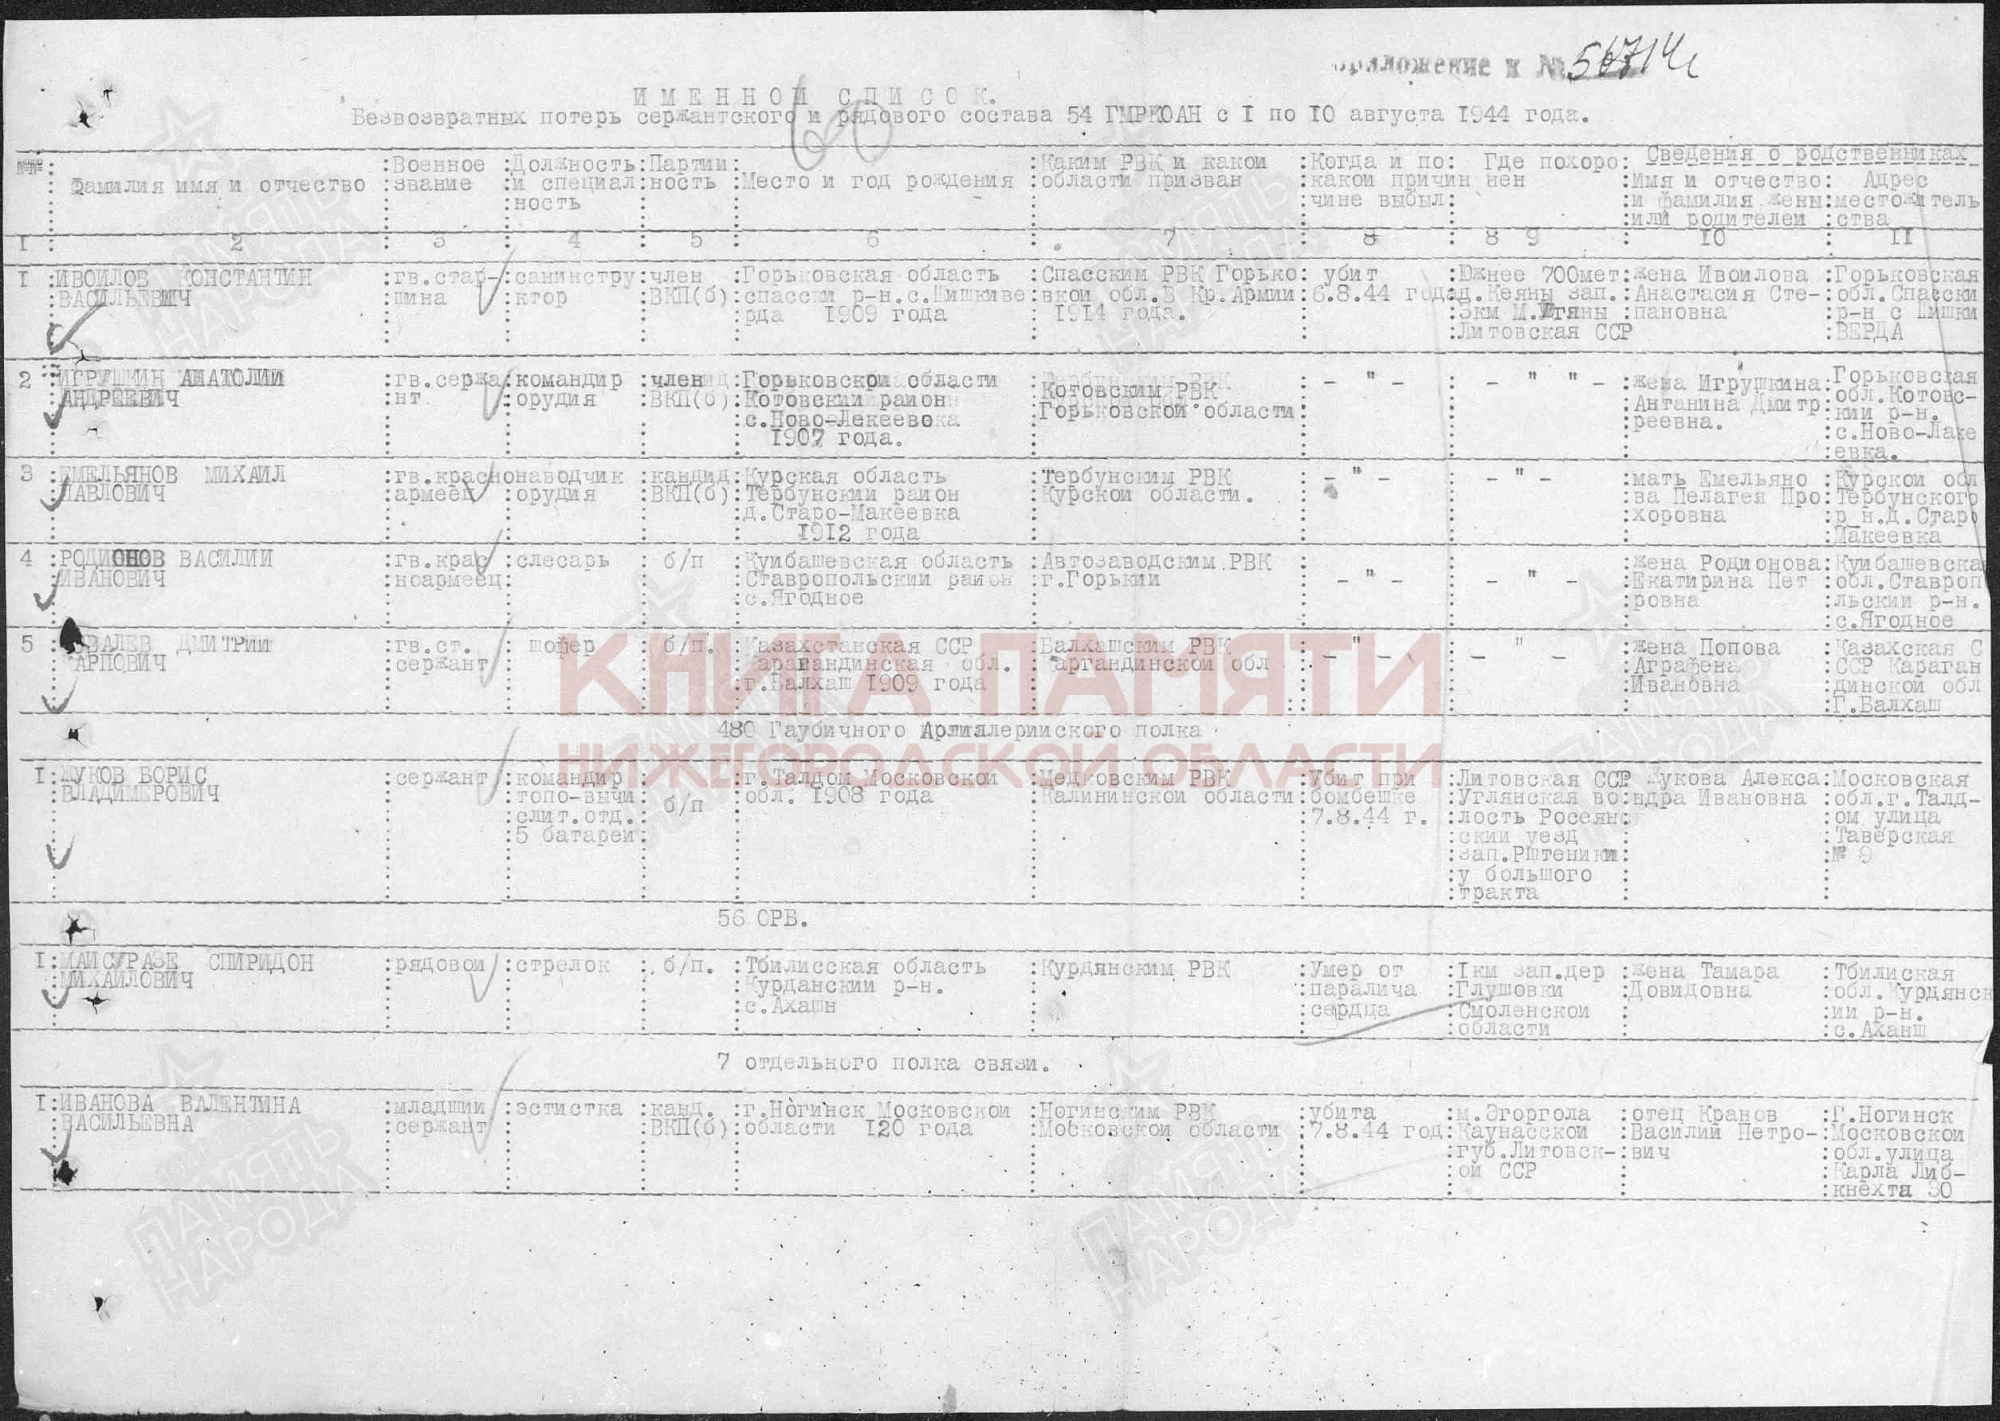 приложение к № 56714с
ИМЕННОЙ СПИСОК.
Безвозвратных потерь сержантского и рядового состава 54 ГМРКОАН с I по IO августа I944 года.
60
№№
Фамилия имя и отчество
:Военное
:звание
:Должность
:и специал
:ность
:Партии
:ность
:Место и год рождения
:Каким РВК и какои
:области призван
:Когда и по:
:какои причин
:чине выбыл:
Где похоро:
нен
Сведения о родственниках
:Имя и отчество:
:и фамилия жены:
:или родителеи
Адрес
местожитель
ства
I : 2 : 3 : 4 : 5 : 6 : 7 : 8 : 8 9 : IO : II
I :ИВОИЛОВ КОНСТАНТИН
ВАСИЛЬЕВИЧ
:гв.стар-
:шина
:санинстру
:ктор
:член
:ВКП(б)
:Горьковская область
:спасски р-н.с.Шишкиве
:рда I909 года
:Спасским РВК Горько
:вкои обл.В Кр.Армии
I9I4 года.
: убит
:6.8.44 года
:Южнее 700мет
д.Кеяны зап.
:3км М. тяны
:Литовская ССР
:жена Ивоилова
:Анастасия Сте-
:пановна
:Горьковская
:обл.Спасски
:р-н с Шишки
:ВЕРДА
2 :ИГРУШКИН АНАТОЛИИ
АНДРЕЕВИЧ
:гв.сержа
:нт
:командир
:орудия
:член
:ВКП(б)
:Горьковскои области
:Котовскии район
:с.Ново-Лекеевока
I907 года.
Котовским РВК
Горьковскои области
- " -
- " " -
:жена Игрушкина
:Антанина Дмитр
:реевна.
:Горьковская
:обл.Котовс-
:кии р-н.
:с.Ново-Лаке
:евка.
3 :ЕМЕЛЬЯНОВ МИХАИЛ
ПАВЛОВИЧ
:гв.красно
:армеец
наводчик
:орудия
:кандид
:ВКП(б)
:Курская область
:Тербунскии раион
:д.Старо-Макеевка
I9I2 года
:Тербунским РВК
:Курскои области.
- " -
- " -
:мать Емельяно
:ва Пелагея Про
:хоровна
:Курскои обл
:Тербунского
:р_н.д.Старо
:Макеевка
4 :РОДИОНОВ ВАСИЛИИ
ИВАНОВИЧ
:гв.крас
:ноармеец:
:слесарь
б/п
:Куибашевская область
:Ставропольскии раион
:с.Ягодное
:Автозаводским.РВК
:г.Горькии
- " -
- " -
:жена Родионова
:Екатирина Пет
:ровна
:Куибашевска
:обл.Ставроп
:льскии р-н.
:с.Ягодное
5 ВАЛЕВ ДМИТРИИ
КАРПОВИЧ
:гв.ст.
:сержант
: шофер
б/п.
:Казахстанская ССР
:Карагандинская обл.
:г.Балхаш I909 года
:Балхашским РВК
:Каргандинскои обл
- " -
- " -
:жена Попова
:Аграфена
:Ивановна
:Казахская С
:ССР Караган
:динскои обл
:Г.Балхаш
КНИГА ПАМЯТИ
НИЖЕГОРОДСКОЙ ОБЛАСТИ
480 Гаубичного Артиллериискского полка
I:ЖУКОВ БОРИС
ВЛАДИМЕРОВИЧ
:сержант
:командир
:топо-вычи
:слит.отд.
:5 батареи:
б/п
:г.Талдом Московскои
:обл. I908 года
:Медновским РВК
:Калининскои области
:Убит при
:бомбешке
:7.8.44 г.
:Литовская ССР
:Углянская во
:лость Росеянс
:скии уезд
:зап.Рштеники
:у большого
:тракта
:Жукова Алекса
:ндра Ивановна
:Московская
:обл.г.Талд-
:ом улица
:Таверская
:№ 9
56 ОРБ.
I:МАИСУРАЗЕ СПИРИДОН
МИХАИЛОВИЧ
:рядовои
:стрелок
б/п.
:Тбилисская область
:Курданскии р-н.
:с.Ахашн
:Курдянским РВК
:Умер от
:паралича
:сердца
:Iкм зап.дер
:Глушовки
:Смоленскои
:области
:жена Тамара
:Довидовна
:Тбилиская
:обл.Курдянск
:ии р-н.
:с.Аханш
7 отдельного полка связи.
I:ИВАНОВА ВАЛЕНТИНА
ВАСИЛЬЕВНА
:младшии
:сержант
:эстистка
:канд.
:ВКП(б)
:г.Ногинск Московскои
:области I20 года
:Ногинским РВК
:Московскои области
:убита
:7.8.44 год
:м.Эгоргола
:Каунасскои
:губ.Литовск-
:ои ССР
:отец Кранов
:Василий Петро-
:вич
:Г.Ногинск
:Московскои
:обл.улица
:Карла Либ-
:кнехта 30
ПАМЯТЬ
НАРОДА